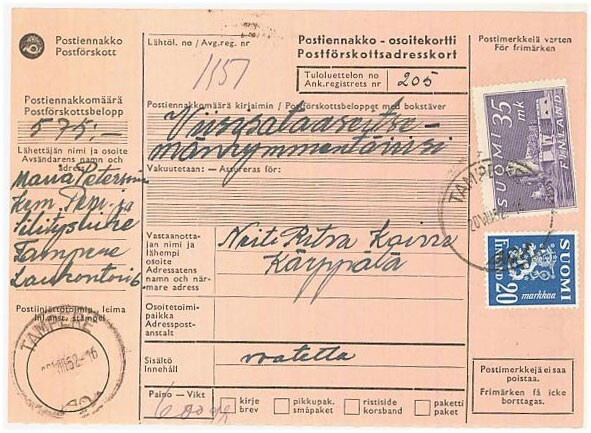 Postiennakko
Postförskott
Lähtöl. no / Avg.reg. nr
1157
Postiennakko - osoitekortti
Postförskottsadresskort
Tuloluettelon no
Ank.registrets nr 205
Postimerkkejä varten
För frimärken
Postiennakkomäärä
Postförskottsbelopp
575:-
Postiennakkomäärä kirjaimin / Postförskottsbeloppet med bokstäver
Viisisataaseitse-
mänkymmentäviisi
Vakuutetaan: — Assureras för:
Lähettäjän nimi ja osoite
Avsändarens namn och
adress
Maria Petersen
Kem. Pesu ja
Tampere
Laukontori 6
Vastaanotta-
jan nimi ja
lähempi
osoite
Adressatens
namn och när-
mare adress
Neiti Ritva Kaisa
Kärppälä
Osoitetoimi-
paikka
Adresspost-
anstalt
Postiinjättötoimip. leima
Inl.anst. stämpel
TAMPERE
52-16
Sisältö
Innehåll
vaatetta
Paino — Vikt
kirje
brev
pikkupak.
småpaket
ristiside
korsband
paketti
paket
SUOMI 35 mk
FINLAND
TAMPERE
SUOMI
FINLAND
20 markkaa
Postimerkkejä ei saa
poistaa.
Frimärken få icke
borttagas.